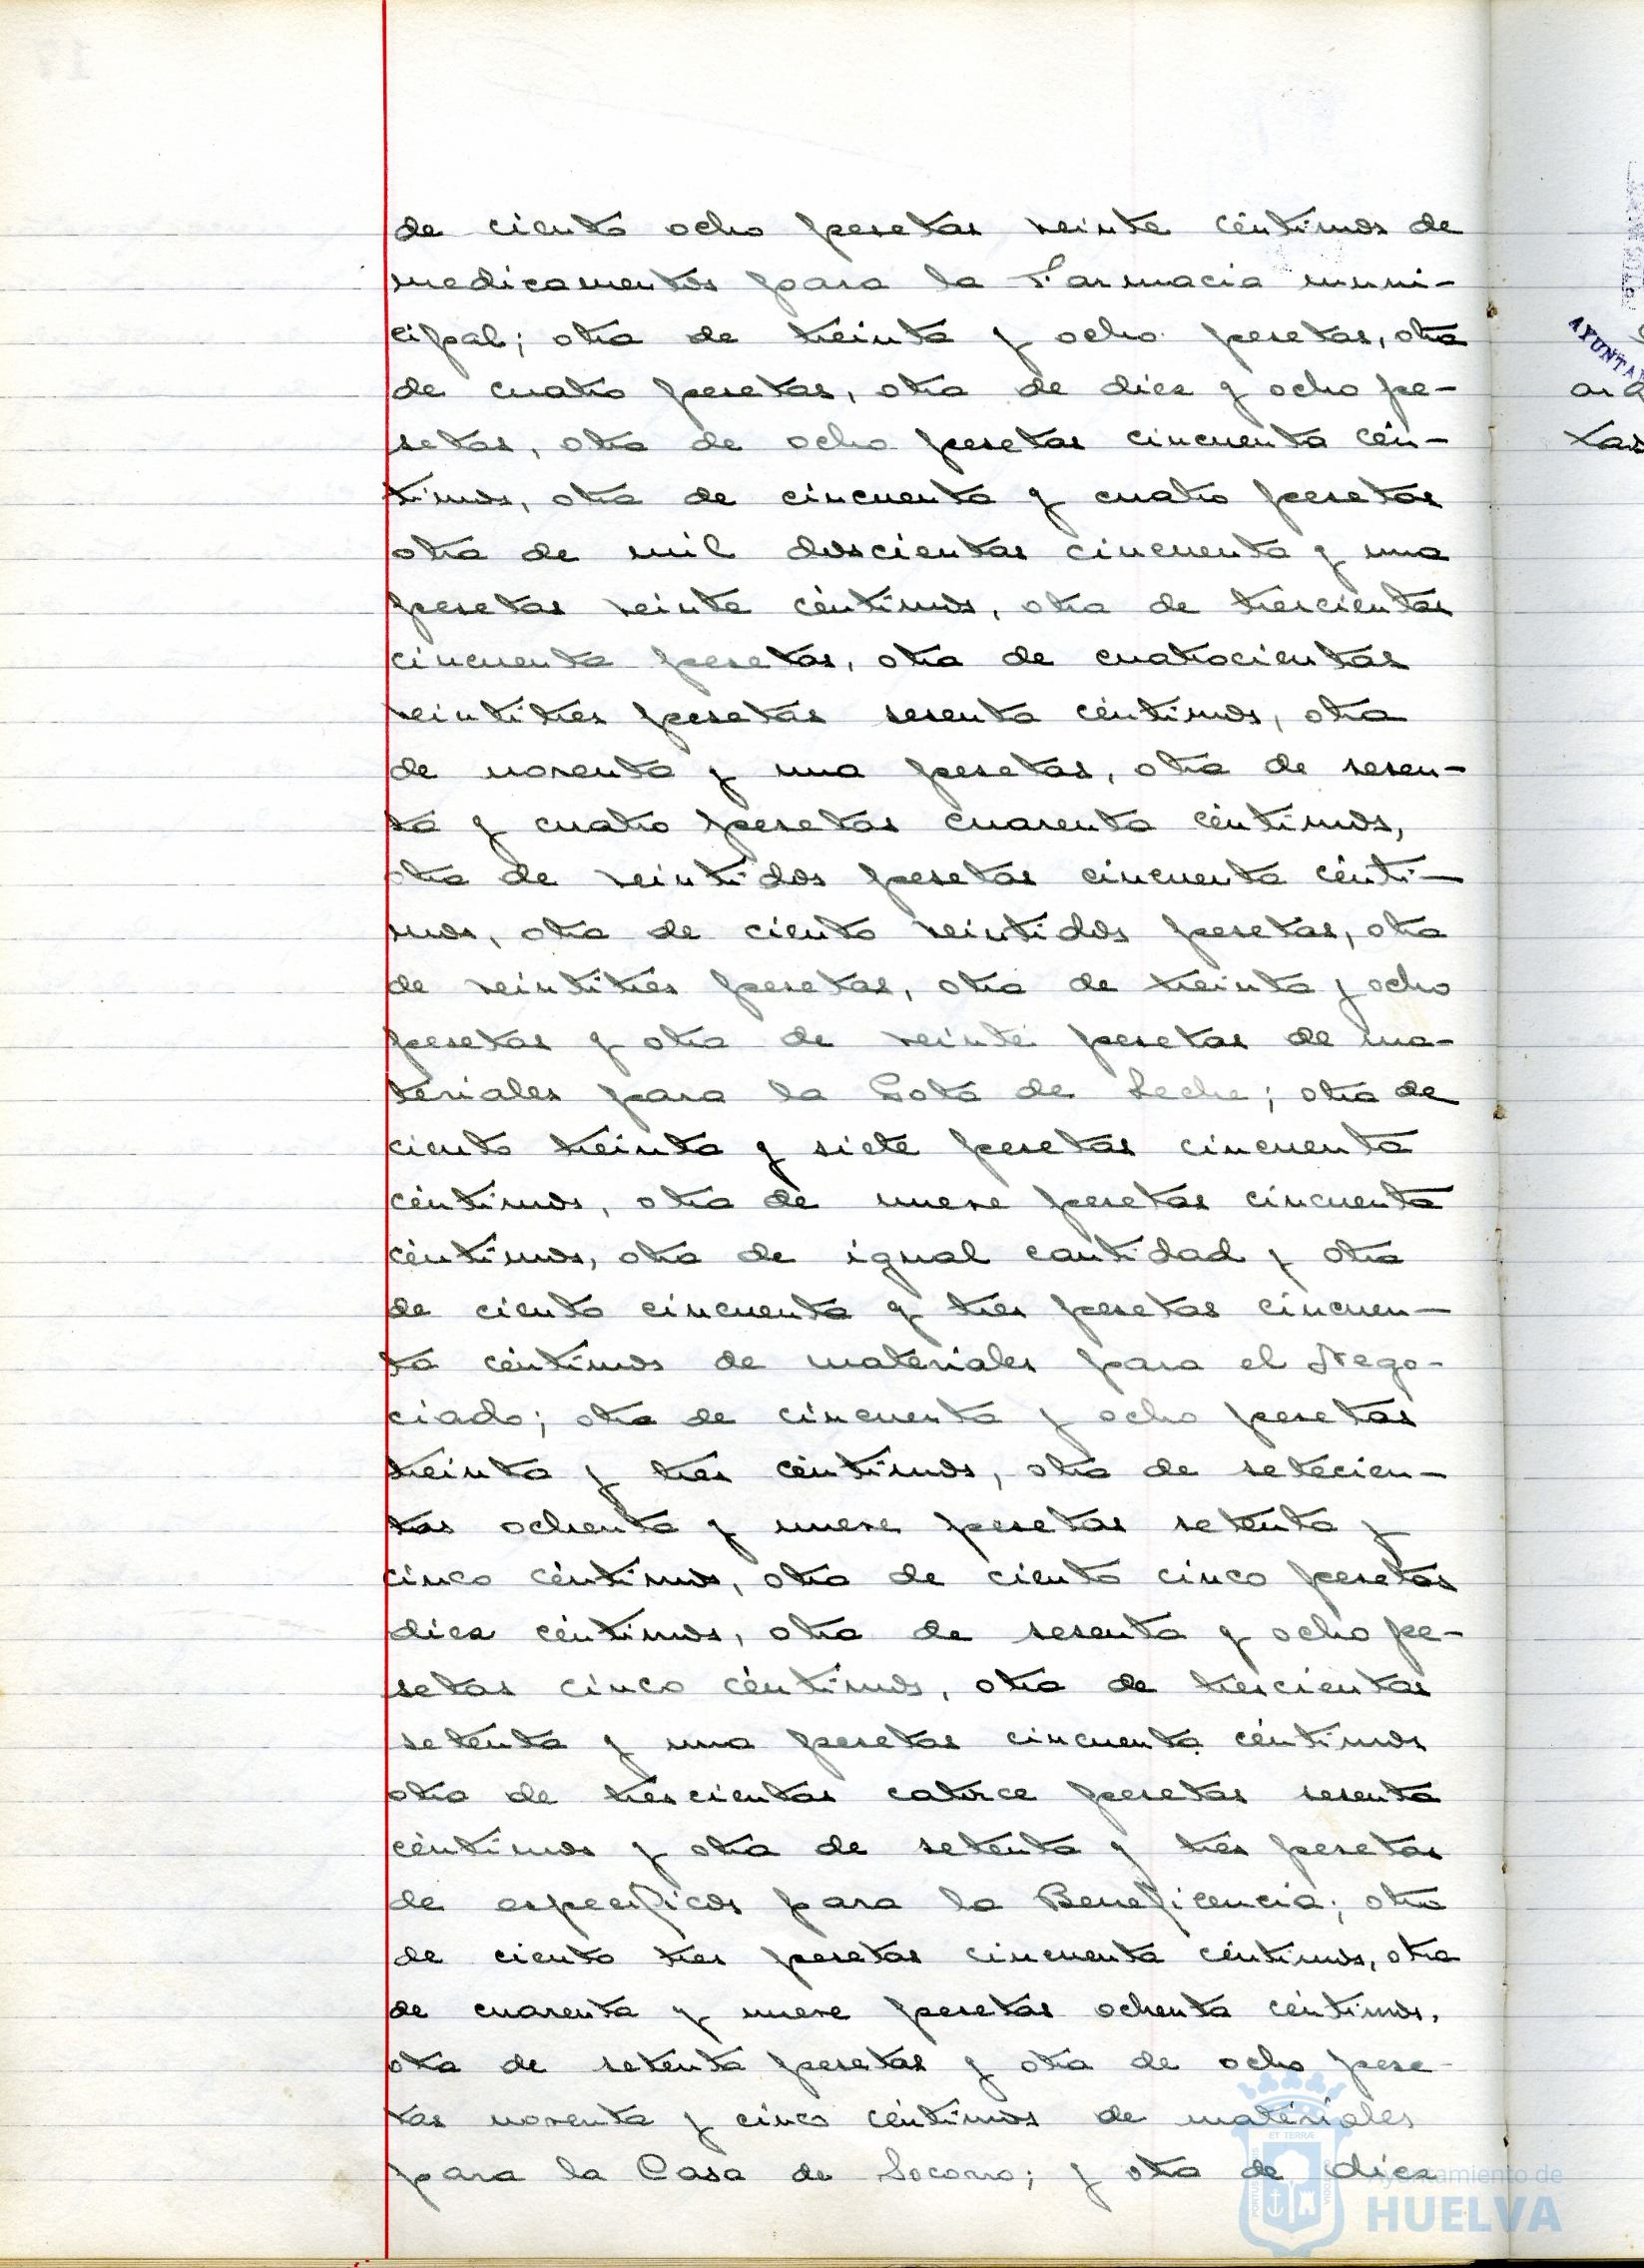 de ciento ocho pesetas veinte céntimos de
medicamentos para la Farmacia muni-
cipal; otra de treinta y ocho pesetas, otra
de cuatro pesetas, otra de diez y ocho pe-
setas, otra de ocho pesetas cincuenta cén-
timos, otra de cincuenta y cuatro pesetas
otra de mil doscientas cincuenta y una
pesetas veinte céntimos, otra de trescientas
cincuenta pesetas, otra de cuatrocientas
veintitres pesetas sesenta céntimos, otra
de noventa y una pesetas, otra de sesen-
ta y cuatro pesetas cuarenta céntimos,
otra de veintidos pesetas cincuenta cénti-
mos, otra de ciento veintidos pesetas, otra
de veintitres pesetas, otra de treinta y ocho
pesetas y otra de veinte pesetas de ma-
teriales para la Gota de Leche; otra de
ciento treinta y siete pesetas cincuenta
céntimos, otra de nueve pesetas cincuenta
céntimos, otra de igual cantidad y otra
de ciento cincuenta y tres pesetas cincuen-
ta céntimos de materiales para el Nego-
ciado; otra de cincuenta y ocho pesetas
treinta y tres céntimos, otra de setecien-
tas ochenta y nueve pesetas setenta y
cinco céntimos, otra de ciento cinco pesetas
diez céntimos, otra de sesenta y ocho pe-
setas cinco céntimos, otra de trescientas
setenta y una pesetas cincuenta céntimos
otra de trescientas catorce pesetas sesenta
céntimos y otra de setenta y tres pesetas
de especificos para la Beneficencia; otra
de ciento tres pesetas cincuenta céntimos, otra
de cuarenta y nueve pesetas ochenta céntimos,
otra de setenta pesetas y otra de ocho pese-
tas noventa y cinco céntimos de materiales
para la Casa de Socorro; y otra de diez
AYUNTA
tas
ET TERRA
Ayuntamiento de
HUELVA